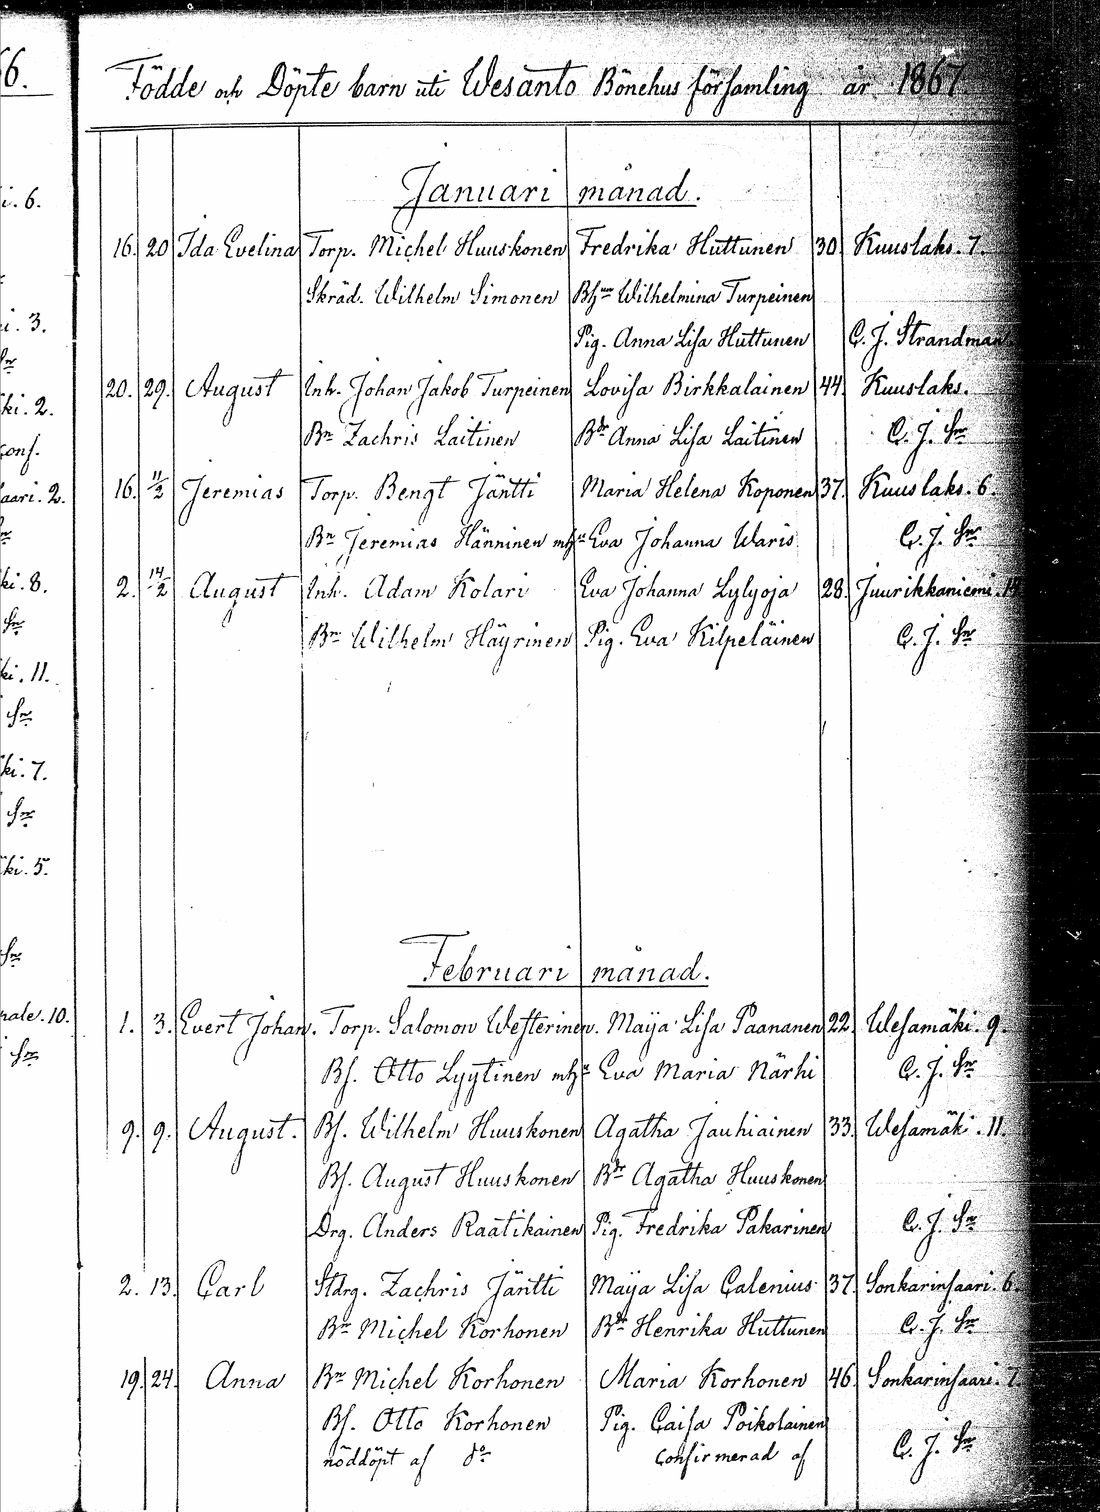 66.
Födde och Döpte barn uti Wesanto Bönehus församling år 1867.
i. 6.
Januari månad.
16. 20 Ida Evelina Torp. Michel Huuskonen Fredrika Huttunen 30. Kuuslaks. 7.
Skräd. Wilhelm Simonen Bhun Wilhelmina Turpeinen
i. 3. Pig. Anna Lisa Huttunen C. J. Strandman
20. 29. August Inh. Johan Jakob Turpeinen Lovisa Birkkalainen 44. Kuuslaks.
ki. 2. Bn Zachris Laitinen Bdr Anna Lisa Laitinen C. J. Sn
conf.
aari. 2. 16. 11/2 Jeremias Torp. Bengt Jäntti Maria Helena Koponen 37. Kuuslaks. 6.
Bn Jeremias Hänninen mhu Eva Johanna Waris C. J. Sn
ki. 8. 2. 14/2 August Inh. Adam Kolari Eva Johanna Lylyoja 28. Juurikkaniemi.
Sn Bn Wilhelm Häyrinen Pig. Eva Kilpeläinen C. J. Sn
ki. 11.
Sn
ki. 7.
Sn
ki. 5.
Sn
Februari månad.
nale. 10. 1. 3. Evert Johan. Torp. Salomon Westerinen. Maija Lisa Paananen 22. Wesamäki. 9.
Sn Bs. Otto Lyytinen mhu Eva Maria Närhi C. J. Sn
9. 9. August. Bs. Wilhelm Huuskonen Agatha Jauhiainen 33. Wesamäki. 11.
Bs. August Huuskonen Bdr Agatha Huuskonen
Drg. Anders Raatikainen Pig. Fredrika Pakarinen C. J. Sn
2. 13. Carl Stdrg. Zachris Jäntti Maija Lisa Calenius 37. Sonkarinsaari. 6.
Bn Michel Korhonen Bdr Henrika Huttunen C. J. Sn
19. 24. Anna Bn Michel Korhonen Maria Korhonen 46. Sonkarinsaari. 7.
Bs. Otto Korhonen Pig. Caisa Poikolainen
nöddöpt af do confirmerad af C. J. Sn